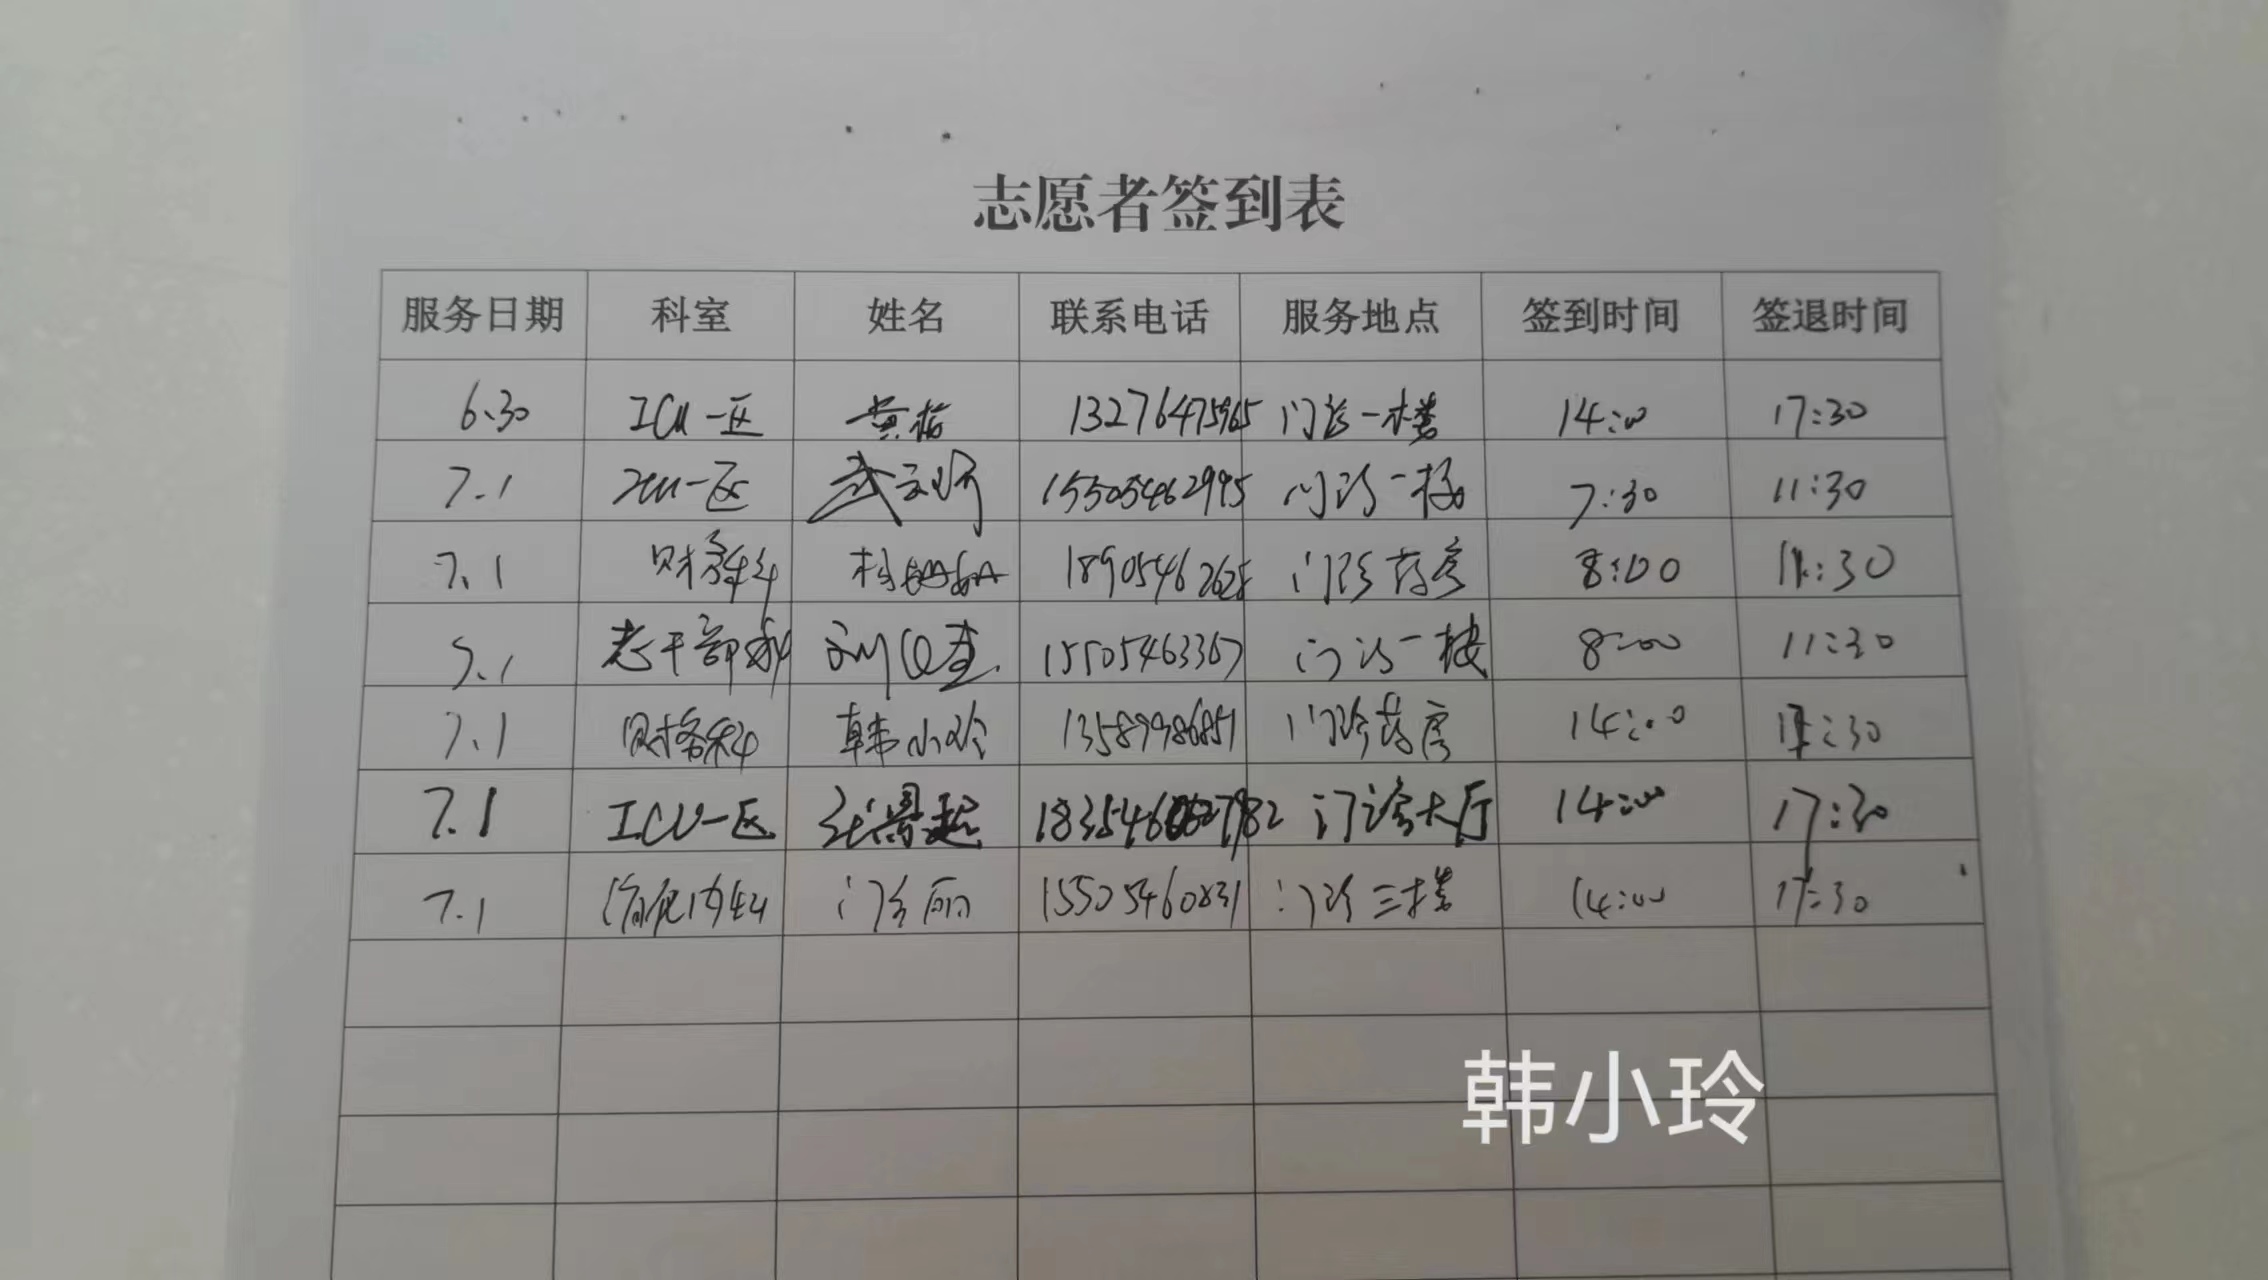 志愿者签到表
服务日期 科室 姓名 联系电话 服务地点 签到时间 签退时间
6.30 ICU一区 黄 13276475965 门诊一楼 14:00 17:30
7.1 ICU一区 武 15505462995 门诊一楼 7:30 11:30
7.1 财务科 18905462628 门诊药房 8:00 11:30
7.1 老干部科 刘 15505463367 门诊一楼 8:00 11:30
7.1 财务科 韩小玲 13589986851 门诊药房 14:00 17:30
7.1 ICU一区 门诊大厅 14:00 17:30
7.1 消化内科 丽 15505460831 门诊三楼 14:00 17:30
韩小玲